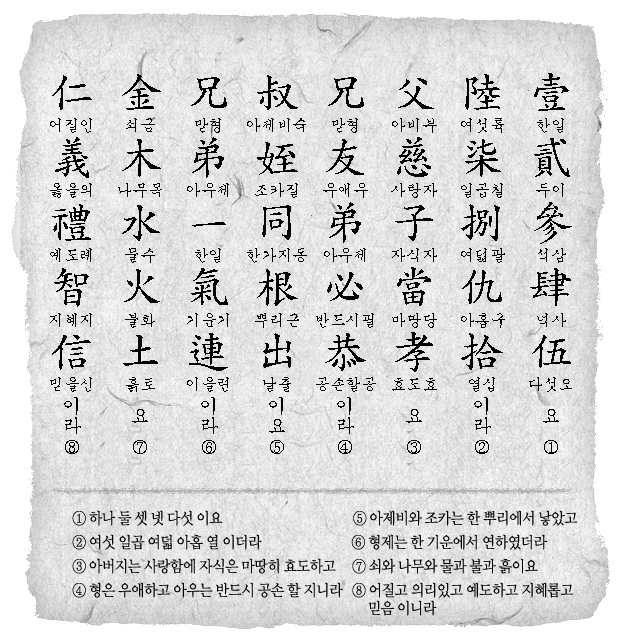 壹 한일 貳 두이 參 석삼 肆 넉사 伍 다섯오 요 ①
陸 여섯륙 柒 일곱칠 捌 여덟팔 仇 아홉구 拾 열십 이라 ②
父 아비부 慈 사랑자 子 자식자 當 마땅당 孝 효도효 요 ③
兄 맏형 友 우애우 弟 아우제 必 반드시필 恭 공손할공 이라 ④
叔 아제비숙 姪 조카질 同 한가지동 根 뿌리근 出 날출 이요 ⑤
兄 맏형 弟 아우제 一 한일 氣 기운기 連 이을련 이라 ⑥
金 쇠금 木 나무목 水 물수 火 불화 土 흙토 요 ⑦
仁 어질인 義 옳을의 禮 예도례 智 지혜지 信 믿을신 이라 ⑧
① 하나 둘 셋 넷 다섯 이요
② 여섯 일곱 여덟 아홉 열 이더라
③ 아버지는 사랑함에 자식은 마땅히 효도하고
④ 형은 우애하고 아우는 반드시 공손 할 지니라
⑤ 아제비와 조카는 한 뿌리에서 낳았고
⑥ 형제는 한 기운에서 연하였더라
⑦ 쇠와 나무와 물과 불과 흙이요
⑧ 어질고 의리있고 예도하고 지혜롭고
믿음 이니라